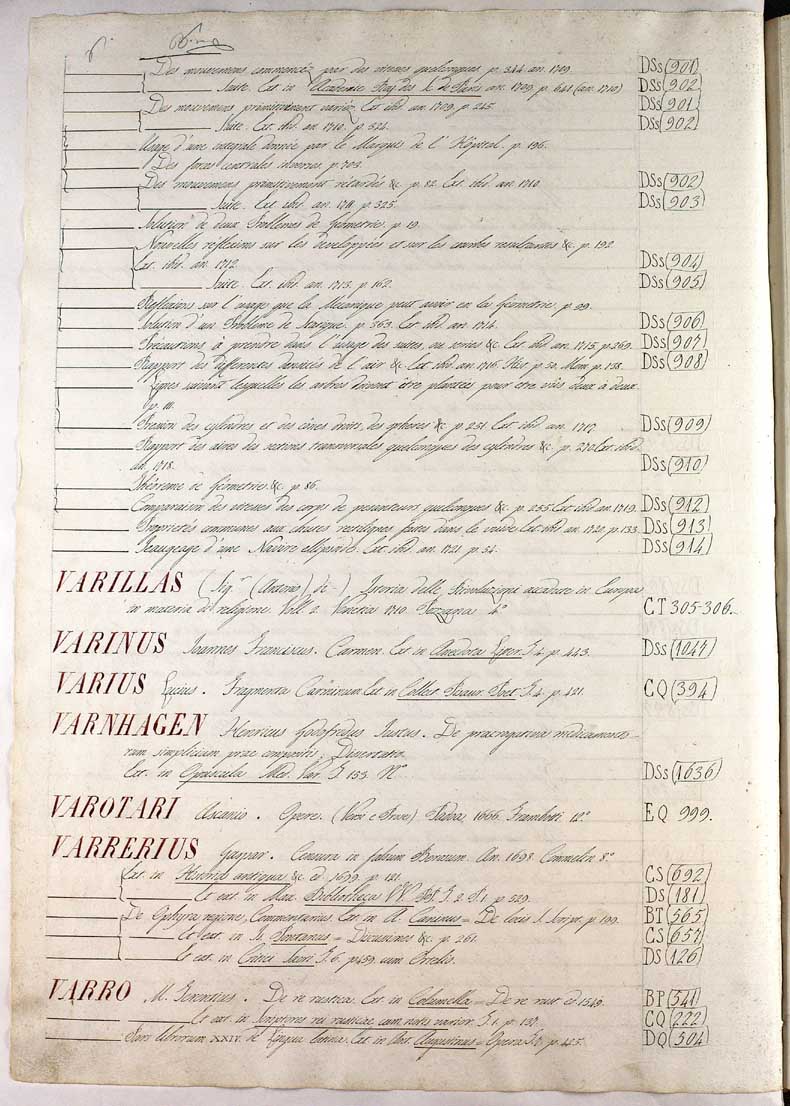 Des mouvemens commencéz par des vitesses quelconques. p. 344. an. 1709. DSs (901)
Suite. Ext. in Academie Roy. des S. de Paris an. 1709. p. 641 (an. 1710) DSs (902)
Des mouvemens primitivement variéz Ext. ibid. an. 1709. p. 245. DSs (901)
Suite. Ext. ibid. an. 1710. p. 524. DSs (902)
Usage d'une integrale donnée par le Marquis de l'Hôpital. p. 196.
Des forces centrales inverses. p. 703.
Des mouvemens primitivement rétardés &c. p. 82. Ext. ibid. an. 1710. DSs (902)
Suite. Ext. ibid. an. 1711. p. 325. DSs (903)
Solution de deux Problemes de Géometrie. p. 19.
Nouvelles réflexions sur les developpées et sur les courbes resultantes &c. p. 192.
Ext. ibid. an. 1712. DSs (904)
Suite. Ext. ibid. an. 1713. p. 162. DSs (905)
Réflexions sur l'usage que la Mécanique peut avoir en la Géometrie. p. 99.
Solution d'un Problème de Statique. p. 363. Ext. ibid. an. 1714. DSs (906)
Précautions à prendre dans l'usage des suites, ou series &c. Ext. ibid. an. 1715. p. 269. DSs (907)
Rapport des differentes densités de l'air &c. Ext. ibid. an. 1716. Hist. p. 50. Mem. p. 138. DSs (908)
Lignes suivant lesquelles les arbres doivent être plantées pour être vûs deux à deux.
p. 111.
Pression des cylindres et des cônes droits, des spheres &c. p. 251. Ext. ibid. an. 1717. DSs (909)
Rapport des aires des sections transversales quelconques des cylindres &c. p. 270. Ext. ibid.
an. 1718. DSs (910)
Théoreme de Géometrie &c. p. 86.
Comparaison des vitesses des corps de pesanteurs quelconques &c. p. 255. Ext. ibid. an. 1719. DSs (912)
Proprietés communes aux chutes rectilignes faites dans le vuide Ext. ibid. an. 1720. p. 133. DSs (913)
Jaugeage d'une Navire ellipsoide. Ext. ibid. an. 1721. p. 54. DSs (914)
VARILLAS (Sig.r (Antonio) di -) Istoria delle Rivoluzioni accadute in Europa
in materia di religione. Voll. 2. Venezia 1710. Pezzana. 4.o CT 305-306.
VARINUS Ioannes Franciscus. Carmen. Ext. in Anecdota Litter. T. 4. p. 443. DSs (1047)
VARIUS Lucius. Fragmenta Carminum Ext. in Collect. Pisaur. Poet. T. 4. p. 421. CQ (394)
VARNHAGEN Henricus Godofredus Iustus. De praerogativa medicamento-
rum simplicium prae compositis. Dissertatio.
Ext. in Opuscula Med. Var. T. 153. N.o DSs (1636)
VAROTARI Ascanio. Opere. (Versi e Prose) Padova, 1666. Frambotti. 12.o EQ 999.
VARRERIUS Gaspar. Censura in falsum Berosum. An. 1698. Commelin. 8.o
Ext. in Historia antiqua &c. ed. 1699. p. 121. CS (692)
Et ext. in Max. Bibliotheca VV. Pat. T. 2. P. 1. p. 529. DS (181)
De Ophyra regione, Commentarius. Ext. in A. Caninus = De locis S. Script. p. 199. BT (565)
Et ext. in Io. Pontanus = Discussiones &c. p. 261. CS (657)
Et ext. in Critici Sacri T. 6. p. 459. cum Ortelio. DS (126)
VARRO M. Terentius. De re rustica. Ext. in Columella = De re rust. ed. 1549. BP (541)
Et ext. in Scriptores rei rusticae, cum notis varior. T. 1. p. 137. CQ (222)
Pars librorum XXIV. de lingua latina. Ext. in Ant. Augustinus = Opera T. 8. p. 425. DQ (304)